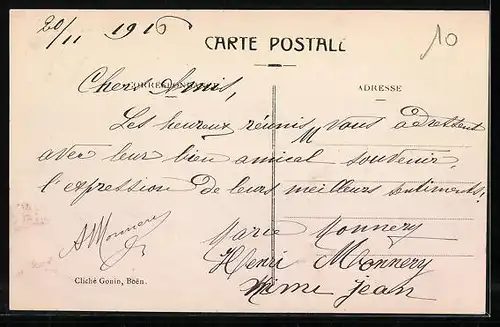 20/11 1916
10
CARTE POSTALE
CORRESPONDANCE
ADRESSE
Chers Amis,
Les heureux réunis vous adressent
avec leur bien amical souvenir,
l'expression de leurs meilleurs sentiments.
A Monnery
Marie Monnery
Henri Monnery
Mme Jean
Cliché Gouin, Boën.